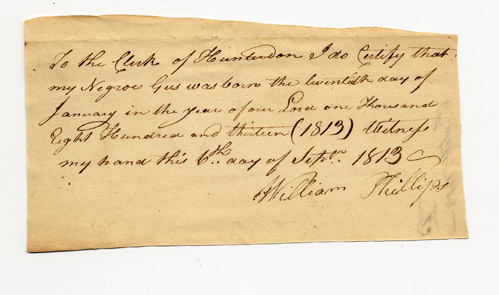 To the Clerk of Hunterdon I do Certify that
my Negroe Gus was born the twentieth day of
January in the year of our Lord one Thousand
Eight Hundred and thirteen (1813) Witness
my hand this 6th. day of Sepr. 1813
William Phillips